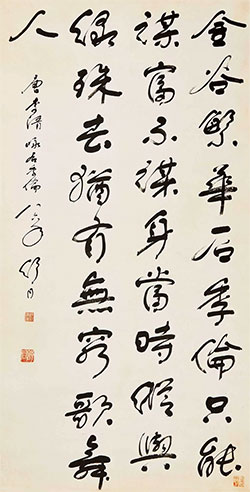 金谷繁華石季倫只能
謀富不謀身當時縱與
綠珠去猶有無窮歌舞
人
唐李清詠石季倫 八六年 舒同